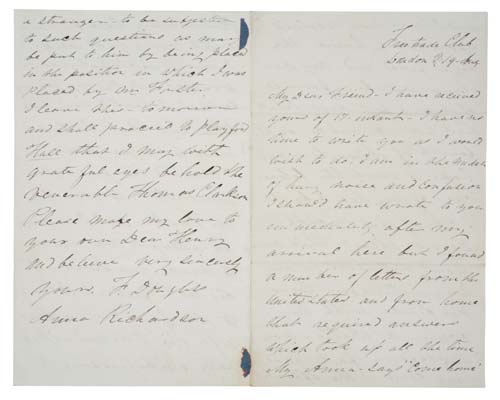 Freetrade Club
London 19 Aug
My Dear Friend - I have received
yours of 17 instant - I have no
time to write you as I would
wish to do. I am in the midst
of hurry noise and confusion
I should have wrote to you
immediately after my
arrival here but I found
a number of letters from the
United states and from home
that required answers
which took up all the time
My Anna - says "Come home"
a stranger - to be subjected
to such questions as may
be put to him by being placed
in the position in which I was
placed by Mr
I leave this - to morrow
and shall proceed to Playford
Hall that I may with
grateful eyes behold the
venerable Thomas Clarkson
Please make my love to
your own Dear Henry
and believe very sincerely
Yours, F. Douglass
Anna Richardson